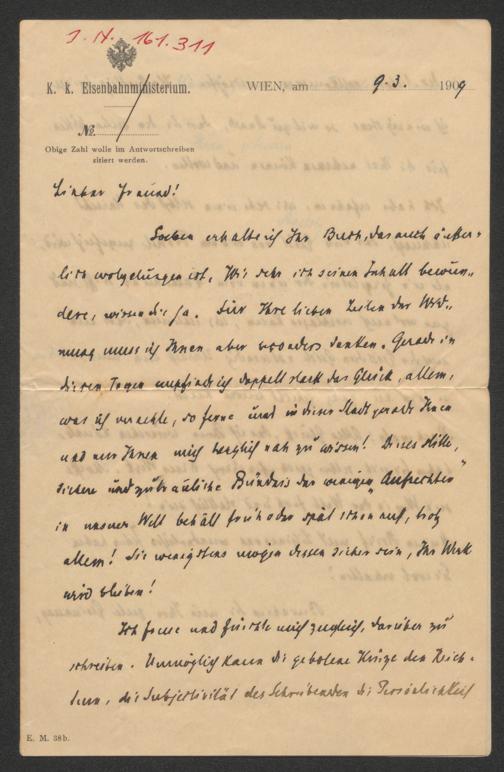 J. N. 161.311
K. k. Eisenbahnministerium.
WIEN, am 9.3. 1909
№
Obige Zahl wolle im Antwortschreiben
zitiert werden.
Lieber Freund!
Soeben erhalte ich Ihr Buch, das auch äußer-
lich wolgelungen ist. Wie sehr ich seinen Inhalt bewun-
dere, wissen Sie ja. Für Ihre lieben Zeilen der Wid-
mung muss ich Ihnen aber besonders danken. Gerade in
diesen Tagen empfinde ich doppelt stark das Glück, allem,
was ich verachte, so ferne und in dieser Stadt gerade Ihnen
und nur Ihnen mich herzlich nah zu wissen! Dieses stille,
sichere und zutrauliche Bündnis der wenigen „Aufrechten"
in unserer Welt behält früh oder spät schon auf, trotz
allem! Sie wenigstens mögen dessen sicher sein, Ihr Werk
wird bleiben!
Ich freue und fürchte mich zugleich, darüber zu
schreiben. Unmöglich kann die gebotene Kürze den Reich-
tum, die Subjectivität des Schreibenden die Persönlichkeit
E. M. 38 b.